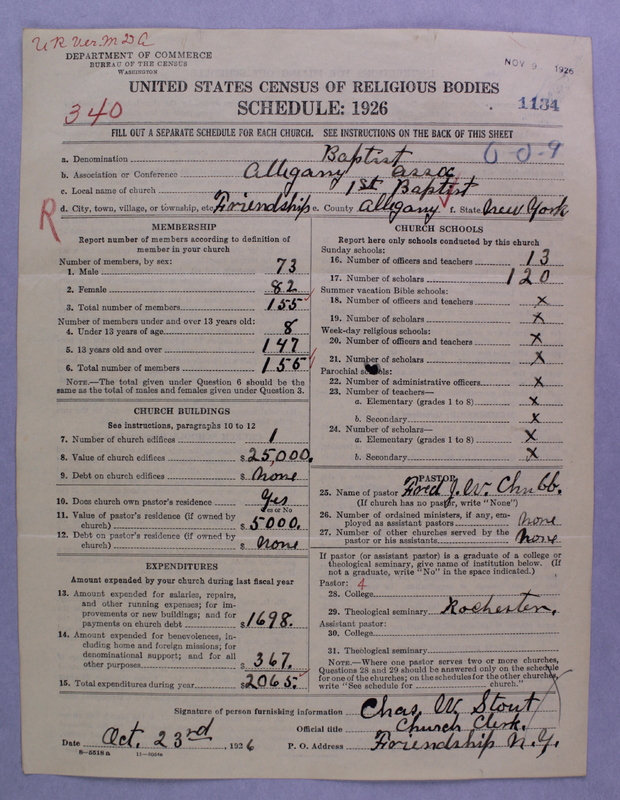 U R Ver. M D A
DEPARTMENT OF COMMERCE
BUREAU OF THE CENSUS
WASHINGTON
NOV 9 1926
UNITED STATES CENSUS OF RELIGIOUS BODIES
SCHEDULE: 1926
340
1134
FILL OUT A SEPARATE SCHEDULE FOR EACH CHURCH. SEE INSTRUCTIONS ON THE BACK OF THIS SHEET
a. Denomination Baptist 6-0-9
b. Association or Conference Allegany Assoc
c. Local name of church 1st Baptist
R
d. City, town, village, or township, etc. Friendship e. County Allegany f. State New York
MEMBERSHIP
Report number of members according to definition of
member in your church
Number of members, by sex:
1. Male 73
2. Female 82
3. Total number of members 155
Number of members under and over 13 years old:
4. Under 13 years of age 8
5. 13 years old and over 147
6. Total number of members 155
NOTE.—The total given under Question 6 should be the
same as the total of males and females given under Question 3.
CHURCH BUILDINGS
See instructions, paragraphs 10 to 12
7. Number of church edifices 1
8. Value of church edifices $25,000.
9. Debt on church edifices $ None
10. Does church own pastor's residence Yes
Yes or No
11. Value of pastor's residence (if owned by
church) $ 5000.
12. Debt on pastor's residence (if owned by
church) $ None
EXPENDITURES
Amount expended by your church during last fiscal year
13. Amount expended for salaries, repairs,
and other running expenses; for im-
provements or new buildings; and for
payments on church debt $1698.
14. Amount expended for benevolences, in-
cluding home and foreign missions; for
denominational support; and for all
other purposes $ 367.
15. Total expenditures during year $2065.
CHURCH SCHOOLS
Report here only schools conducted by this church
Sunday schools:
16. Number of officers and teachers 13
17. Number of scholars 120
Summer vacation Bible schools:
18. Number of officers and teachers x
19. Number of scholars x
Week-day religious schools:
20. Number of officers and teachers x
21. Number of scholars x
Parochial schools:
22. Number of administrative officers x
23. Number of teachers—
a. Elementary (grades 1 to 8) x
b. Secondary x
24. Number of scholars—
a. Elementary (grades 1 to 8) x
b. Secondary x
PASTOR
25. Name of pastor Fred J. W. Chubb.
(If church has no pastor, write "None")
26. Number of ordained ministers, if any, em-
ployed as assistant pastors None
27. Number of other churches served by the
pastor or his assistants None
If pastor (or assistant pastor) is a graduate of a college or
theological seminary, give name of institution below. (If
not a graduate, write "No" in the space indicated.)
Pastor: 4
28. College
29. Theological seminary Rochester.
Assistant pastor:
30. College
31. Theological seminary
NOTE.—Where one pastor serves two or more churches,
Questions 28 and 29 should be answered only on the schedule
for one of the churches; on the schedules for the other churches,
write "See schedule for church."
Signature of person furnishing information Chas. W. Stout
Official title Church Clerk.
Date Oct. 23rd, 1926 P. O. Address Friendship N.Y.
8—5518a 11—9054a